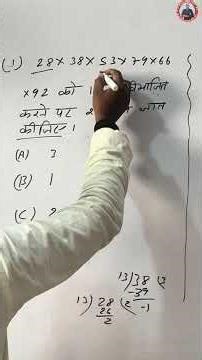 (1) 28×38×53×79×66
×92 को 1 विभाजित
करने पर ज्ञात
कीजिए।
(A) 3
(B) 1
(C)
13)38(3
-39
-1
13)28(2
26
2